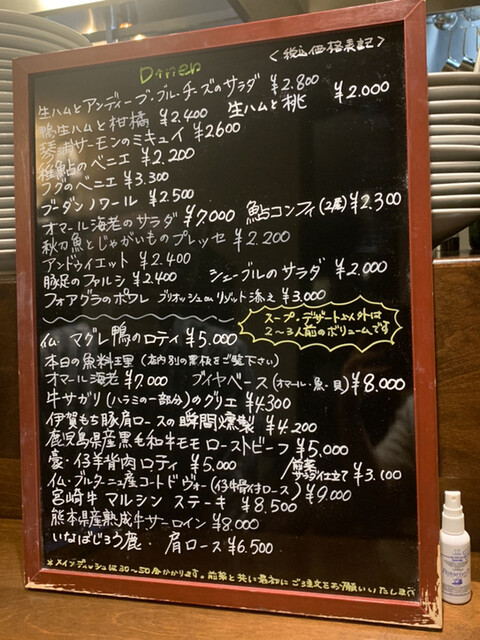 Dinner
＜税込価格表記＞
生ハムとアンディーブ・ブルーチーズのサラダ ¥2.800
生ハムと桃 ¥2.000
鴨生ハムと柑橘 ¥2.400
琴引サーモンのミキュイ ¥2600
稚鮎のベニエ ¥2.200
フグのベニエ ¥3.300
ブーダンノワール ¥2.500
オマール海老のサラダ ¥7.000
鮎コンフィ(2尾) ¥2.300
秋刀魚とじゃがいものプレッセ ¥2.200
アンドゥイエット ¥2.400
豚足のファルシ ¥2.400
シェーブルのサラダ ¥2.000
フォアグラのポワレ ブリオッシュorリゾット添え ¥3.000
スープ・デザート以外は
2〜3人前のボリュームです
仏 マグレ鴨のロティ ¥5.000
本日の魚料理(店内別の黒板をご覧下さい)
オマール海老 ¥7000 ブイヤベース(オマール・魚・貝) ¥8.000
牛サガリ(ハラミの一部分)のグリエ ¥4.300
伊賀もち豚肩ロースの瞬間燻製 ¥4.200
鹿児島県産黒毛和牛モモローストビーフ ¥5.000
豪・仔羊背肉ロティ ¥5.000
/前菜サラダ仕立て ¥3.100
仏・ブルターニュ産コートドヴォー(仔牛骨付ロース) ¥9.000
宮崎牛マルシン ステーキ ¥8.500
熊本県産熟成牛サーロイン ¥8.000
いなばじろう鹿・肩ロース ¥6.500
*メインディッシュは30〜50分かかります。前菜と共に最初にご注文をお願いいたします